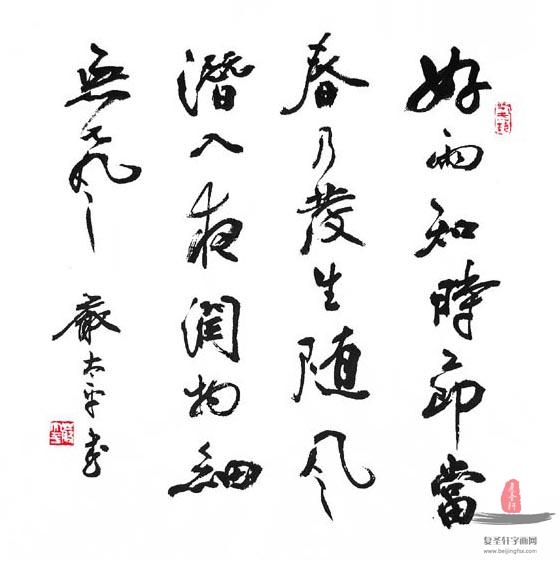 好雨知時節當
春乃發生隨風
潛入夜潤物細
無聲
嚴太平書
复圣轩字画网
www.beijingfsx.com